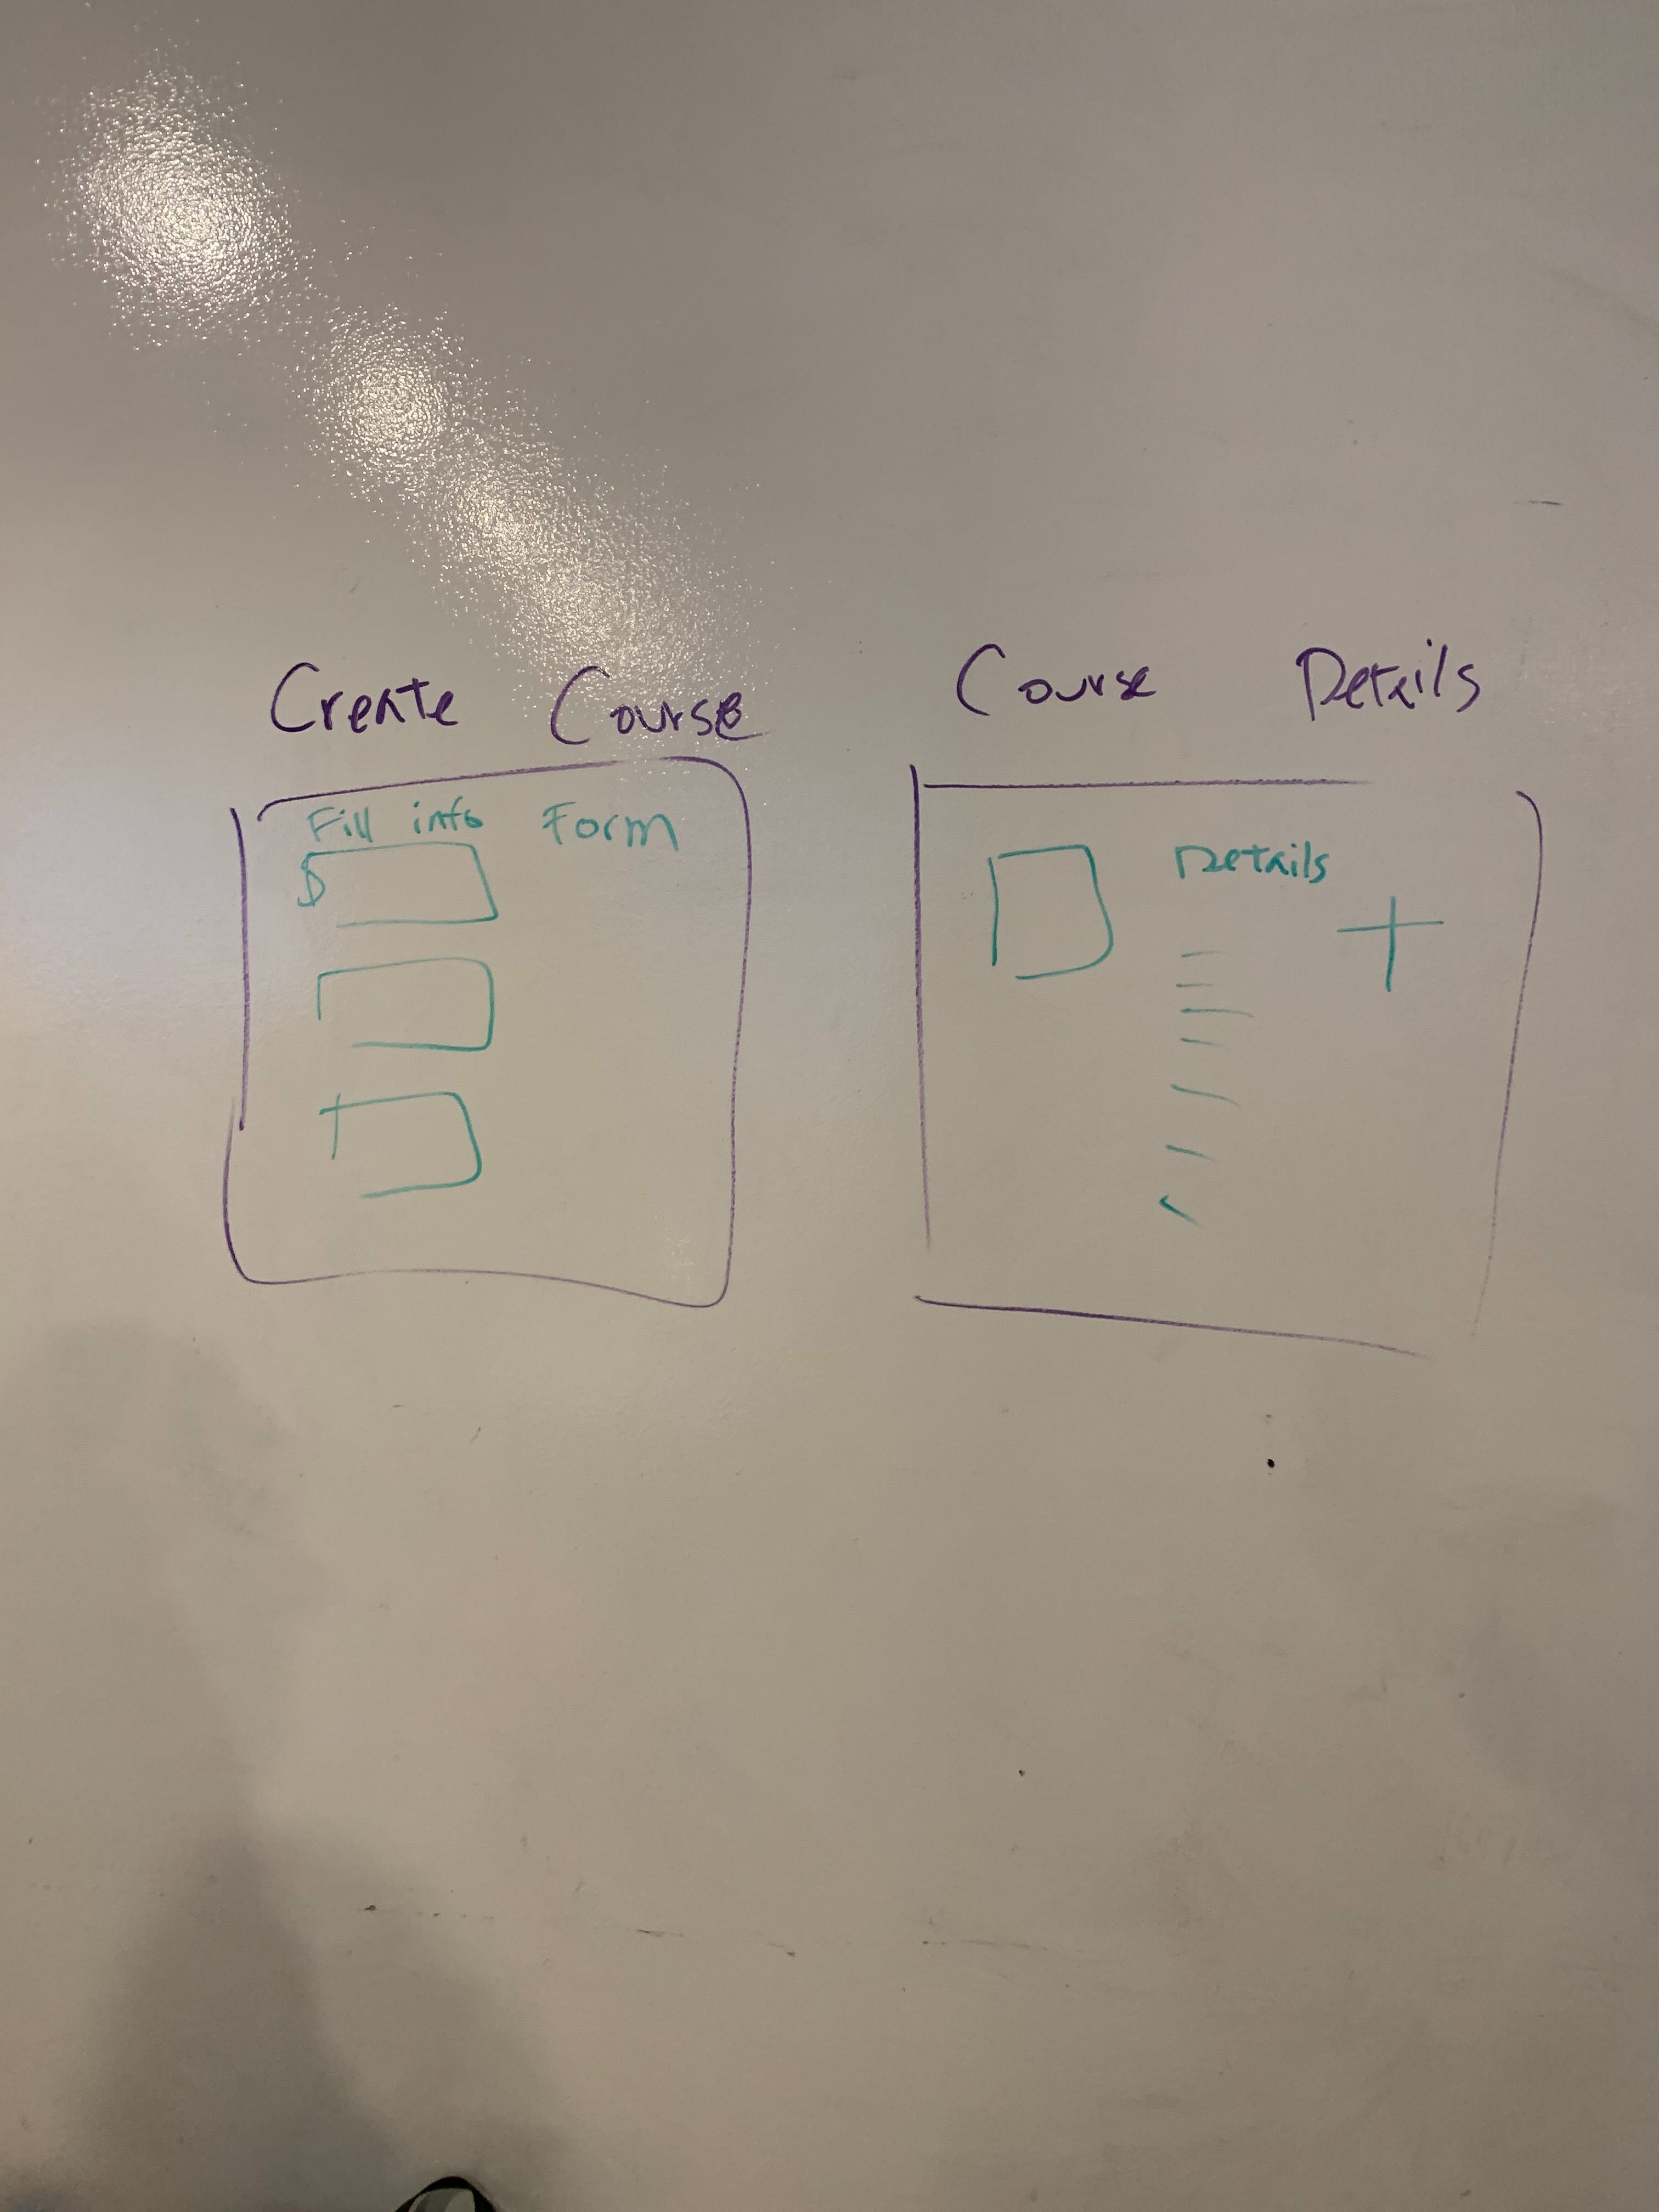 Create Course
Fill info Form
Course Details
Details